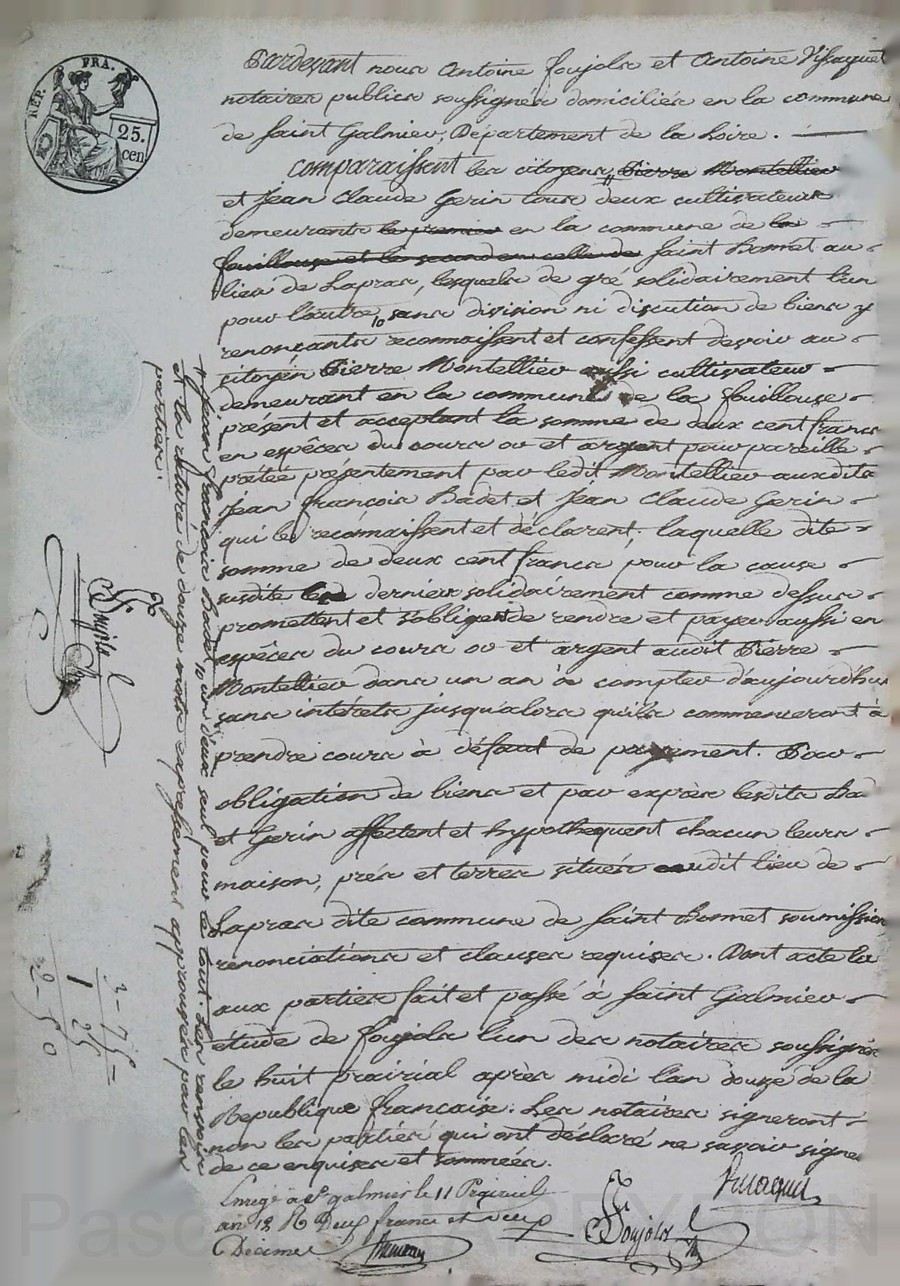 REP. FRA.
25.
cen
Pardevant nous Antoine foujols et Antoine Visaguet
notaires publics soussignés domiciliés en la commune
de saint Galmier, Département de la Loire.
comparaissent les citoyens, Pierre Montellier
et Jean Claude Gerin tous deux cultivateurs
demeurants le premier en la commune de la
fouillouse et le second en celle de saint Bonnet au
lieu de Lapras, lesquels de gré solidairement l'un
pour l'autre, sans division ni discution de biens y
renonçants reconnaissent et confessent devoir au
citoyen Pierre Montellier aussi cultivateur
demeurant en la commune de la fouillouse
présent et acceptant la somme de deux cent francs
en espèces du cours or et argent pour pareille
prêtée présentement par ledit Montellier auxdits
Jean françois Badet et Jean Claude Gerin
qui le reconnaissent et déclarent, laquelle dite
somme de deux cent francs pour la cause
susdite les derniers solidairement comme dessus
promettent et s'obligent de rendre et payer aussi en
espèces du cours or et argent audit Pierre
Montellier dans un an à compter d'aujourd'hui
sans intérets jusqu'alors qu'ils commenceront à
prendre cours à défaut de payement. Pour
obligation de biens et par exprès lesdits Bad
et Gerin affectent et hypothequent chacun leurs
maison, prés et terres situés audit lieu de
Lapras dite commune de saint Bonnet soumission
renonciations et clauses requises. Dont acte lu
aux parties fait et passé à saint Galmier
étude de foujols l'un des notaires soussignés
le huit prairial après midi l'an douze de la
République française. Les notaires signeront
non les parties qui ont déclaré ne savoir signer
de ce enquises et sommées.
Enregé à St galmier le 11 Prairial
an 12 R Deux francs et
Décimes
Visaguet
Foujols
# Jean françois Badet 10 un d'eux seul pour le tout. Les renvois
et la rature de douze mots expressement approuvés par les
parties.
Foujols
2-75
1 25
2-50
Pascal CHAPEYRON